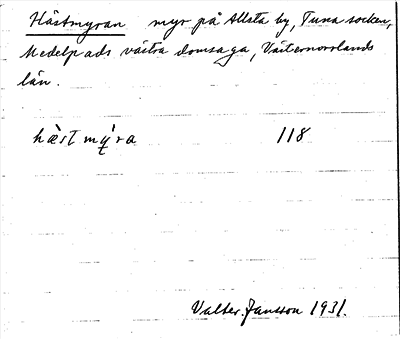 Hästmyran myr på Allsta by, Tuna socken,
Medelpads västra domsaga, Västernorrlands
län.
hæ̀stmý̨ra 118
Valter Jansson 1931.